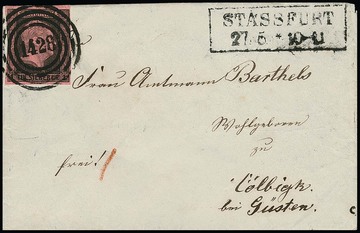 STASSFURT
27. 5 * 10-11
1428
Frau Amtmann Barthels
Wohlgeboren
zu
frei!
Cölbigk
bei Güsten.